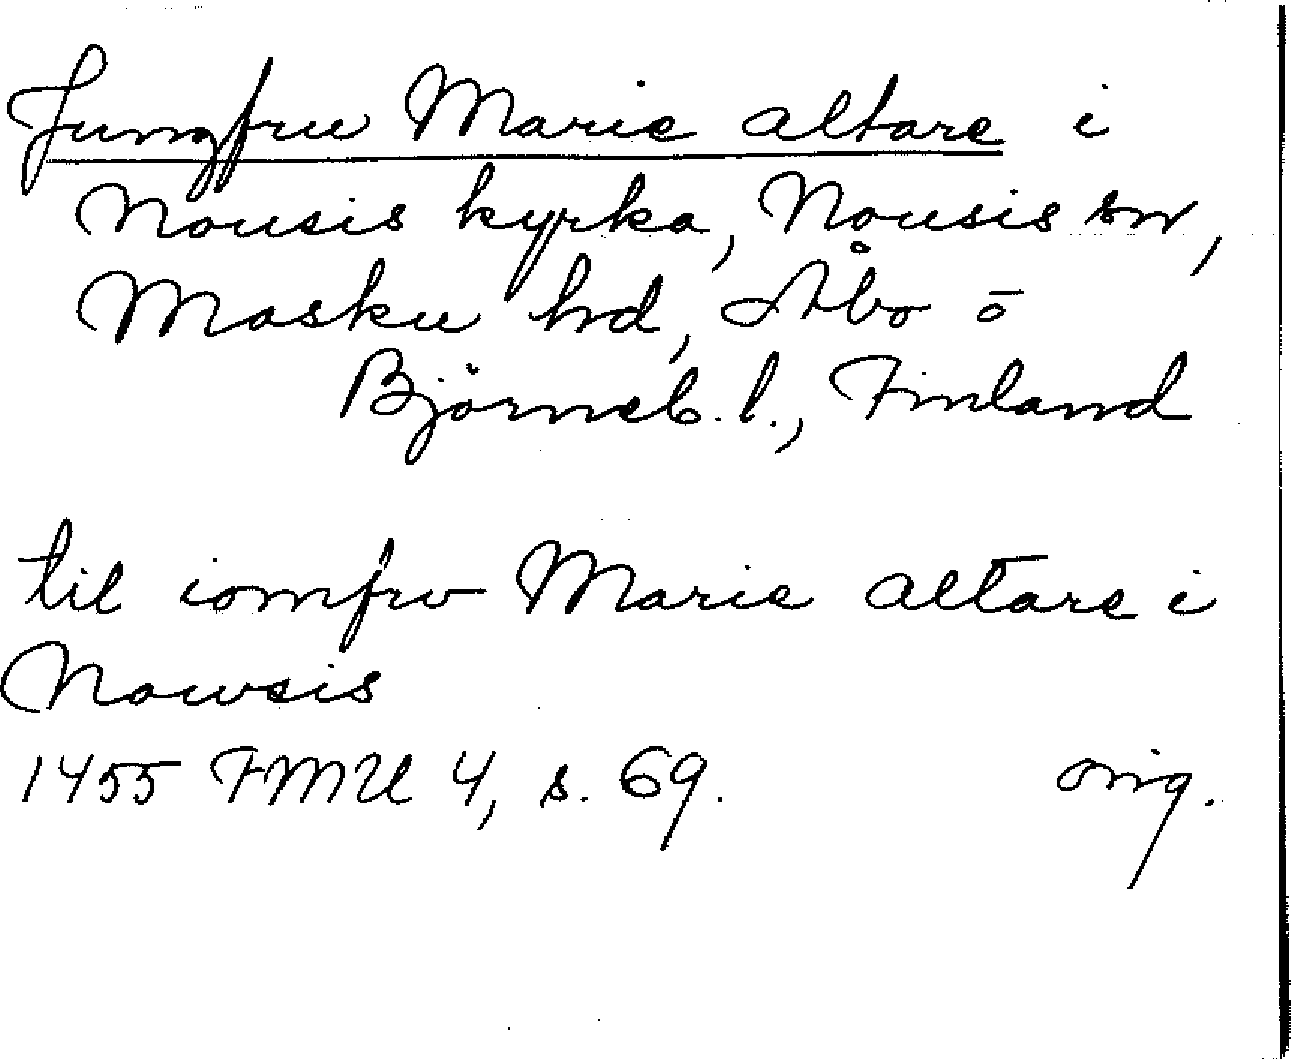 Jungfru Marie altare i
Nousis kyrka, Nousis sn,
Masku hd, Åbo o
Björneb. l., Finland
til iomfrv Marie altare i
Nowsis
1455 FMU 4, s. 69. orig.